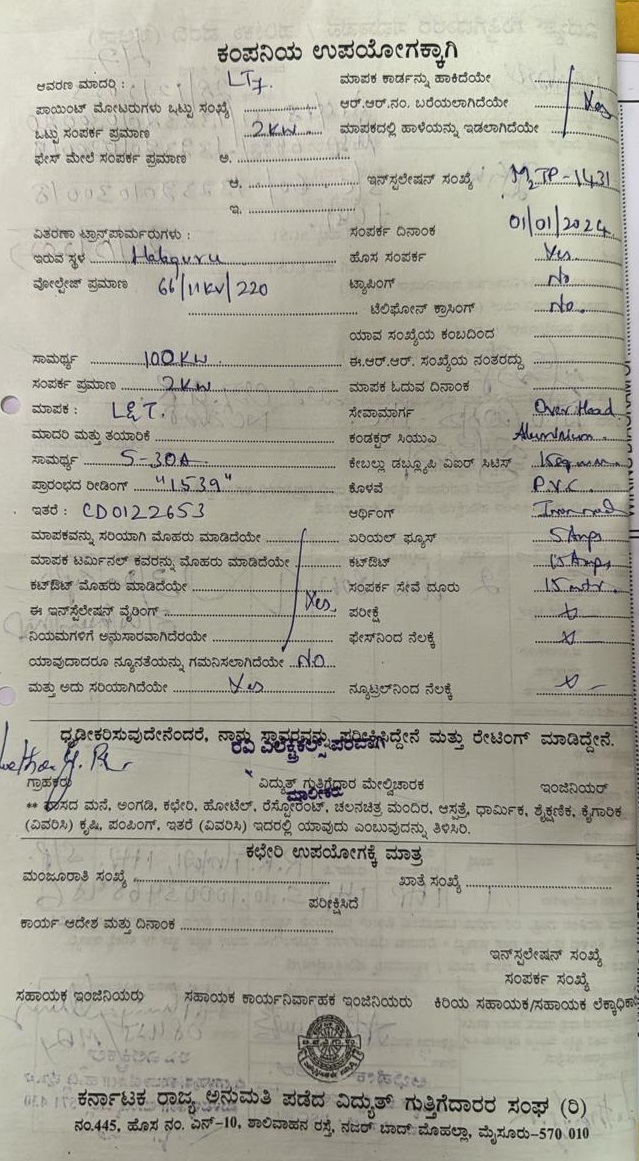 ಕಂಪನಿಯ ಉಪಯೋಗಕ್ಕಾಗಿ
ಆವರಣ ಮಾದರಿ : LT7 ಮಾಪಕ ಕಾರ್ಡನ್ನು ಹಾಕಿದೆಯೇ
ಪಾಯಿಂಟ್ ಮೋಟರುಗಳು ಒಟ್ಟು ಸಂಖ್ಯೆ ಆರ್.ಆರ್.ನಂ. ಬರೆಯಲಾಗಿದೆಯೇ Yes
ಒಟ್ಟು ಸಂಪರ್ಕ ಪ್ರಮಾಣ 2KW ಮಾಪಕದಲ್ಲಿ ಹಾಳೆಯನ್ನು ಇಡಲಾಗಿದೆಯೇ
ಫೇಸ್ ಮೇಲೆ ಸಂಪರ್ಕ ಪ್ರಮಾಣ ಅ.
ಆ. ಇನ್‌ಸ್ಟಲೇಷನ್ ಸಂಖ್ಯೆ TP-1431
ಇ.
ವಿತರಣಾ ಟ್ರಾನ್ಸ್‌ಪಾರ್ಮರುಗಳು : ಸಂಪರ್ಕ ದಿನಾಂಕ 01/01/2024
ಇರುವ ಸ್ಥಳ Halaguru ಹೊಸ ಸಂಪರ್ಕ Yes
ವೋಲ್ಟೇಜ್ ಪ್ರಮಾಣ 66/11KV/220 ಟ್ಯಾಪಿಂಗ್ No
ಟೆಲಿಫೋನ್ ಕ್ರಾಸಿಂಗ್ No.
ಯಾವ ಸಂಖ್ಯೆಯ ಕಂಬದಿಂದ
ಸಾಮರ್ಥ್ಯ 100KW ಈ.ಆರ್.ಆರ್. ಸಂಖ್ಯೆಯ ನಂತರದ್ದು
ಸಂಪರ್ಕ ಪ್ರಮಾಣ 2KW ಮಾಪಕ ಓದುವ ದಿನಾಂಕ
ಮಾಪಕ : L&T. ಸೇವಾಮಾರ್ಗ Over Head
ಮಾದರಿ ಮತ್ತು ತಯಾರಿಕೆ ಕಂಡಕ್ಟರ್ ಸಿಯುಎ Aluminium
ಸಾಮರ್ಥ್ಯ 5-30A ಕೇಬಲ್ಲು ಡಬ್ಲ್ಯೂಪಿ ವಿಐರ್ ಸಿಟಿಸ್
ಪ್ರಾರಂಭದ ರೀಡಿಂಗ್ "1539" ಕೊಳವೆ P.V.C.
ಇತರೆ : CD0122653 ಆರ್ಥಿಂಗ್
ಮಾಪಕವನ್ನು ಸರಿಯಾಗಿ ಮೊಹರು ಮಾಡಿದೆಯೇ ಏರಿಯಲ್ ಫ್ಯೂಸ್ 5 Amps
ಮಾಪಕ ಟರ್ಮಿನಲ್ ಕವರನ್ನು ಮೊಹರು ಮಾಡಿದೆಯೇ ಕಟ್‌ಔಟ್ 15 Amps
ಕಟ್‌ಔಟ್ ಮೊಹರು ಮಾಡಿದೆಯೇ ಸಂಪರ್ಕ ಸೇವೆ ದೂರು 15 mtr.
ಈ ಇನ್‌ಸ್ಟೆಲೇಷನ್ ವೈರಿಂಗ್ Yes ಪರೀಕ್ಷೆ
ನಿಯಮಗಳಿಗೆ ಅನುಸಾರವಾಗಿದೆರಯೇ ಫೇಸ್‌ನಿಂದ ನೆಲಕ್ಕೆ
ಯಾವುದಾದರೂ ನ್ಯೂನತೆಯನ್ನು ಗಮನಿಸಲಾಗಿದೆಯೇ NO
ಮತ್ತು ಅದು ಸರಿಯಾಗಿದೆಯೇ Yes ನ್ಯೂಟ್ರಲ್‌ನಿಂದ ನೆಲಕ್ಕೆ
ಧೃಡೀಕರಿಸುವುದೇನೆಂದರೆ, ನಾನು ಸ್ಥಾವರವನ್ನು ಪರೀಕ್ಷಿಸಿದ್ದೇನೆ ಮತ್ತು ರೇಟಿಂಗ್ ಮಾಡಿದ್ದೇನೆ.
ರವಿ ಎಲೆಕ್ಟ್ರಿಕಲ್ಸ್
ಗ್ರಾಹಕರು ವಿದ್ಯುತ್ ಗುತ್ತಿಗೆದಾರ ಮೇಲ್ವಿಚಾರಕ ಇಂಜಿನಿಯರ್
ಮಾಲೀಕರು
** ವಾಸದ ಮನೆ, ಅಂಗಡಿ, ಕಛೇರಿ, ಹೋಟೆಲ್, ರೆಸ್ಟೋರೆಂಟ್, ಚಲನಚಿತ್ರ ಮಂದಿರ, ಆಸ್ಪತ್ರೆ, ಧಾರ್ಮಿಕ, ಶೈಕ್ಷಣಿಕ, ಕೈಗಾರಿಕ
(ವಿವರಿಸಿ) ಕೃಷಿ, ಪಂಪಿಂಗ್, ಇತರೆ (ವಿವರಿಸಿ) ಇದರಲ್ಲಿ ಯಾವುದು ಎಂಬುವುದನ್ನು ತಿಳಿಸಿರಿ.
ಕಛೇರಿ ಉಪಯೋಗಕ್ಕೆ ಮಾತ್ರ
ಮಂಜೂರಾತಿ ಸಂಖ್ಯೆ ಖಾತೆ ಸಂಖ್ಯೆ
ಪರೀಕ್ಷಿಸಿದೆ
ಕಾರ್ಯ ಆದೇಶ ಮತ್ತು ದಿನಾಂಕ
ಇನ್‌ಸ್ಟಲೇಷನ್ ಸಂಖ್ಯೆ
ಸಂಪರ್ಕ ಸಂಖ್ಯೆ
ಸಹಾಯಕ ಇಂಜಿನಿಯರು ಸಹಾಯಕ ಕಾರ್ಯನಿರ್ವಾಹಕ ಇಂಜಿನಿಯರು ಕಿರಿಯ ಸಹಾಯಕ/ಸಹಾಯಕ ಲೆಕ್ಕಾಧಿಕಾರಿ
ಕರ್ನಾಟಕ ರಾಜ್ಯ ಅನುಮತಿ ಪಡೆದ ವಿದ್ಯುತ್ ಗುತ್ತಿಗೆದಾರರ ಸಂಘ (ರಿ)
ನಂ.445, ಹೊಸ ನಂ. ಎನ್-10, ಶಾಲಿವಾಹನ ರಸ್ತೆ, ನಜರ್ ಬಾದ್ ಮೊಹಲ್ಲಾ, ಮೈಸೂರು-570 010